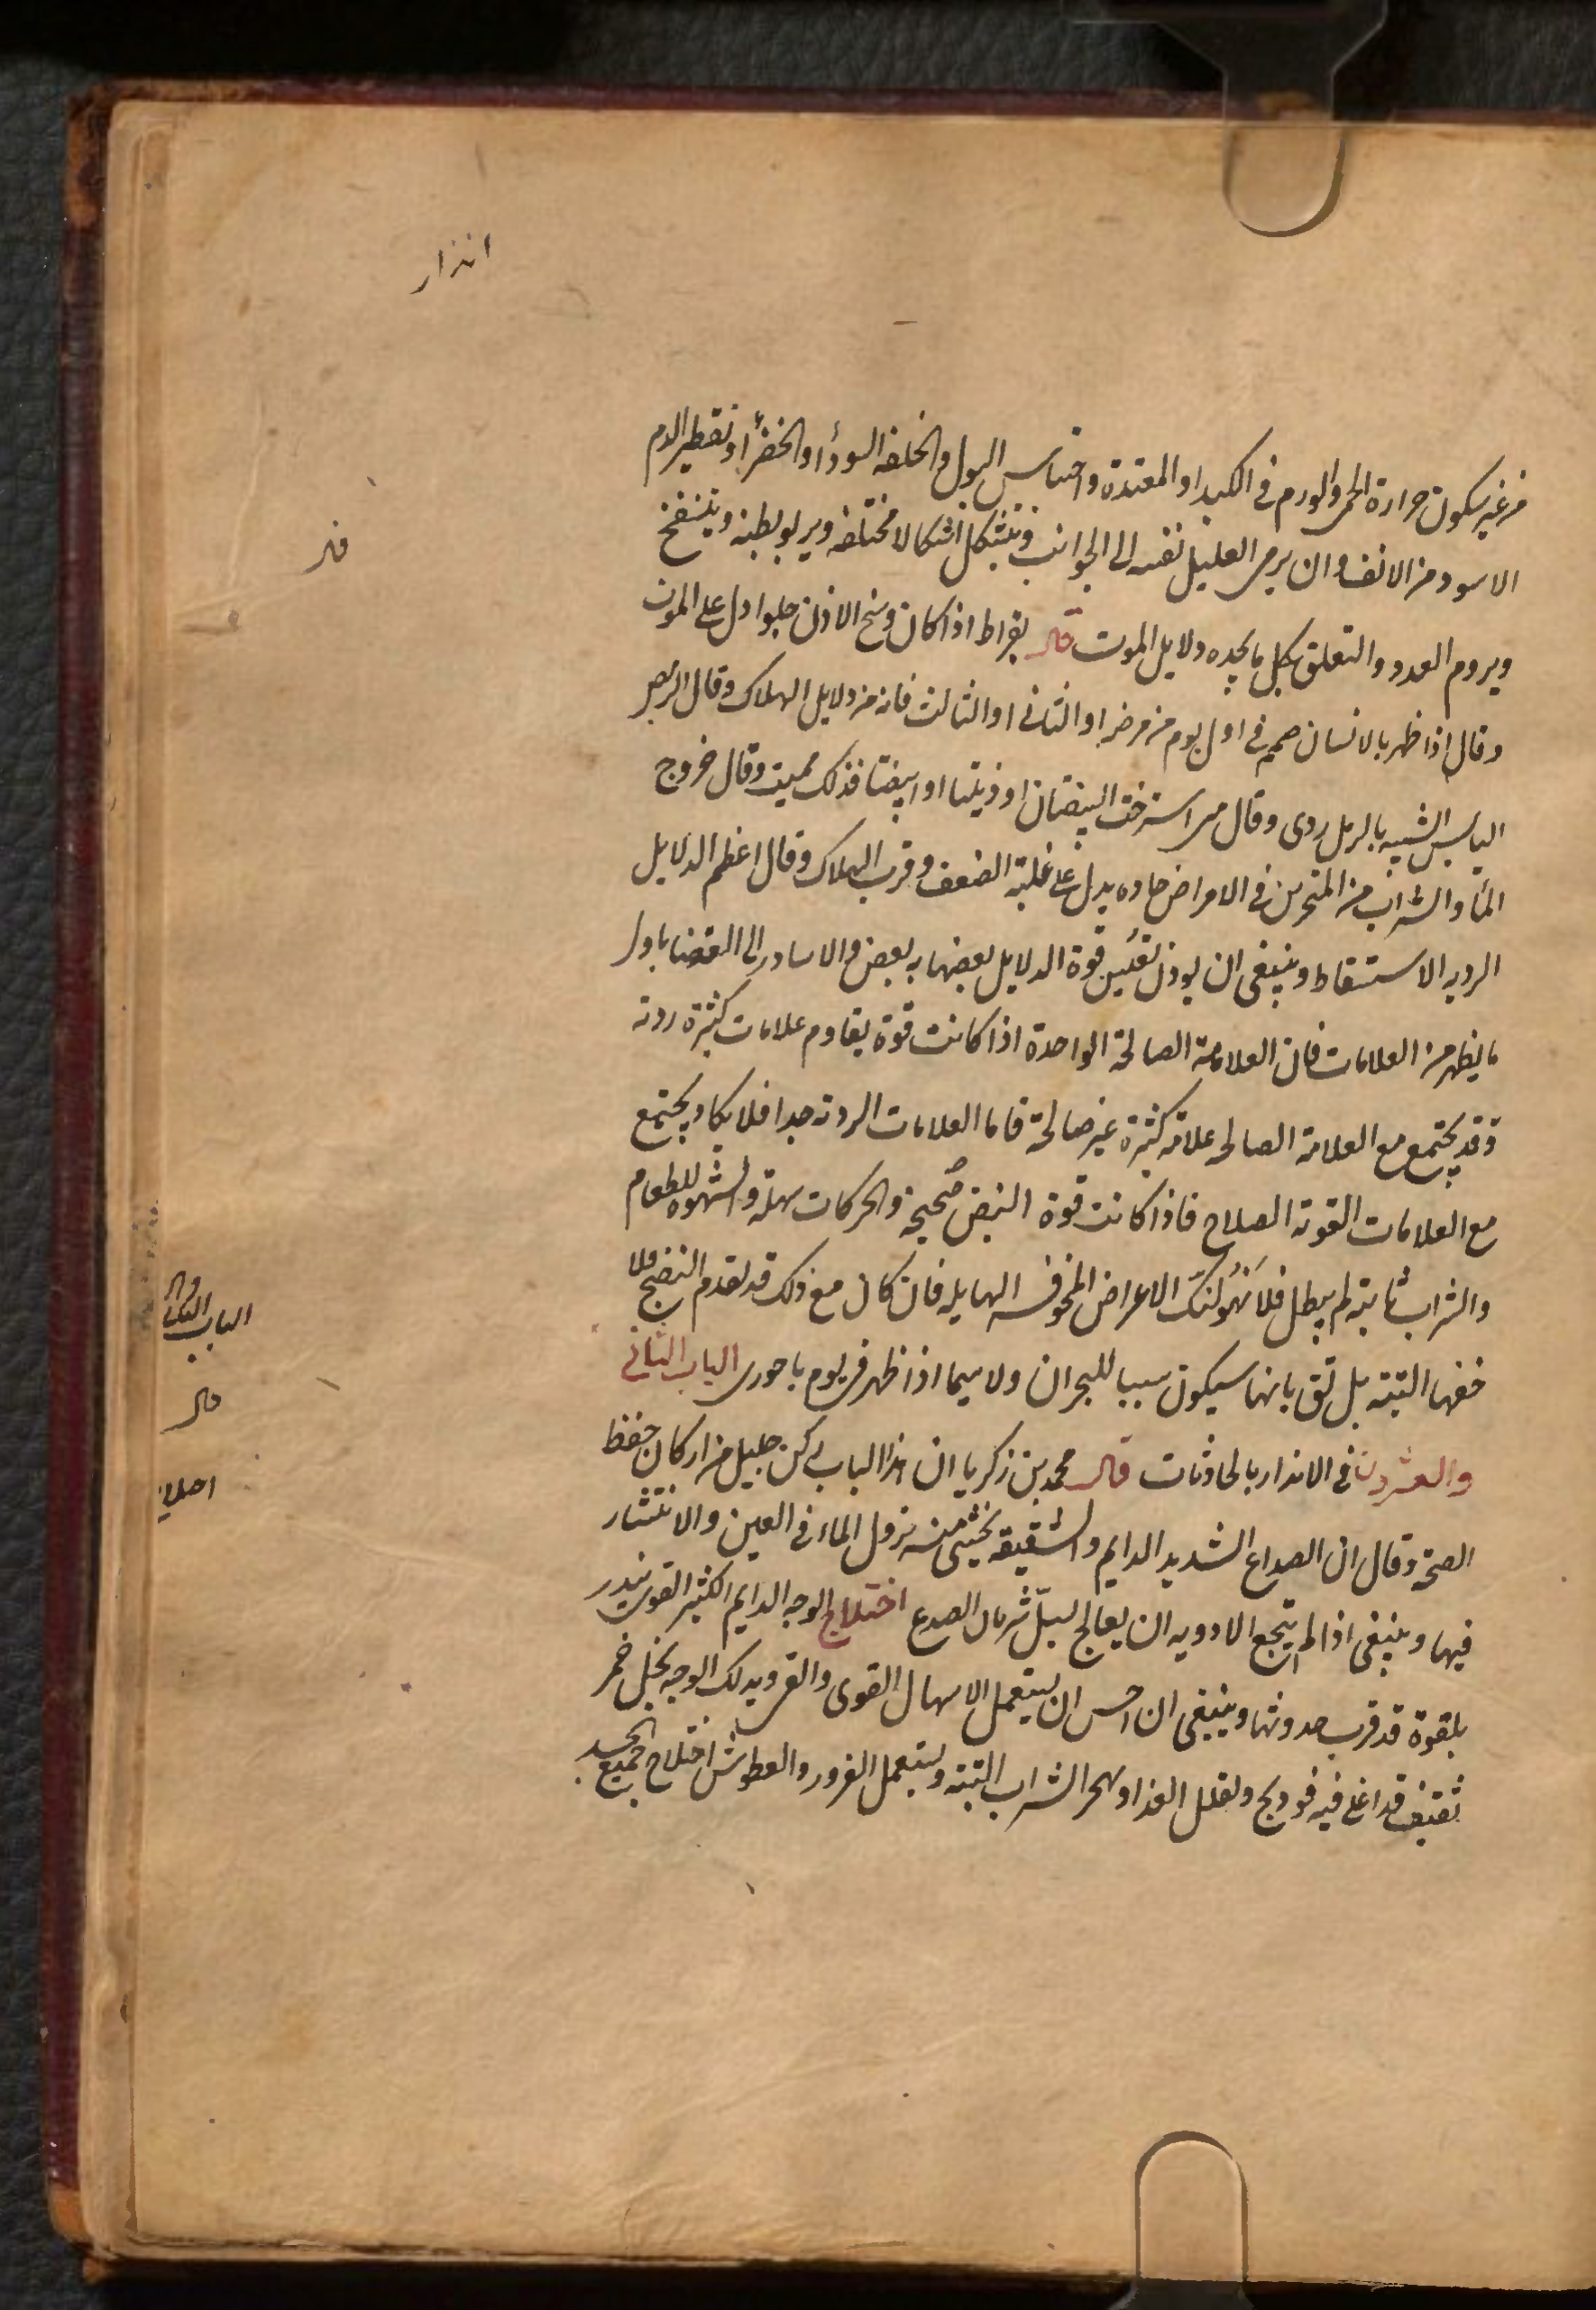 انذار
من غير سكون حرارة الحمى والورم فى الكبد او المعدة واحتباس البول والخلفه السودأ او الخضرأ او تقطير الدم
الاسود من الانف وان يرمى العليل نفسه الى الجوانب وتتشكل اشكالا مختلفه ويربو بطنه وينتفخ
ويروم العدو والتعلق بكل ما يجده دلايل الموت قال بقراط اذا كان وسخ الاذن حلوا دل على الموت
وقال اذا ظهر بالانسان صمم فى اول يوم من مرضه او الثانى او الثالث فانه من دلايل الهلاك وقال الرمص
اليابس الشبيه بالرمل ردى وقال متى استرخت البيضتان او ذبلتا او ابيضتا فذلك مميت وقال خروج
المأ والشراب من المنخرين فى الامراض حاده يدل على غلبة الضعف وقرب الهلاك وقال اعظم الدلايل
الرديه الاستسقاط وينبغى ان يوزن قوة الدلايل بعضها ببعض والا يبادر الى القضا باول
ما يظهر من العلامات فان العلامة الصالحة الواحدة اذا كانت قوة يقاوم علامات كثيرة ردية
وقد يجتمع مع العلامة الصالحه علامة كثيرة غير صالحة فاما العلامات الردية جدا فلا يكاد يجتمع
مع العلامات القوية الصلاح فاذا كانت قوة النبض صحيحة والحركات سهلة والشهوه للطعام
والشراب ثابته لم يبطل فلا تهولنك الاعراض المخوفه الهايله فان كان مع ذلك قد تقدم النضج فلا
خفها البتة بل ثق بانها سيكون سببا للبحران ولا سيما اذا ظهر فى يوم باحورى الباب الثانى
والعشرون فى الانذار بالحادثات قال محمد بن زكريا ان هذا الباب ركن جليل من اركان حفظ
الصحة وقال ان الصداع الشديد الدايم والشقيقه يخشى منه نزول الماء فى العين والانتشار
فيها وينبغى اذا لم ينجع الادويه ان يعالج بسلّ شريان الصدغ اختلاج الوجه الدايم الكثير القوى ينذر
بلقوة قد قرب حدوثها وينبغى ان احس ان يستعمل الاسهال القوى والقى ويدلك الوجه بخل خمر
ثقيف قد اغلى فيه فودنج ويقلل الغذا ويهجر الشراب البتة ويستعمل الغرور والعطوش اختلاج جميع الجسد
قال
الباب
قال
اختلاج